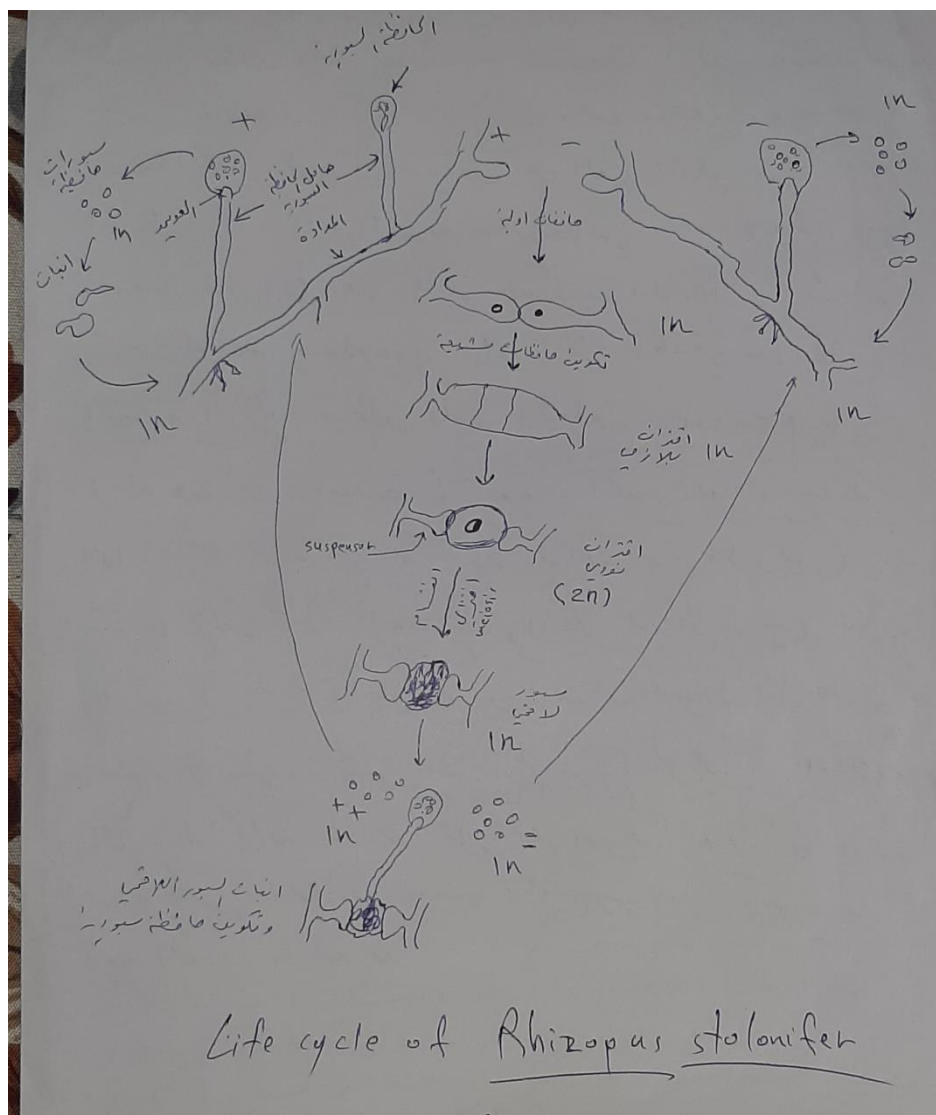 الحافظة السبورية
+
سبورات
حافظية
1n
العويميد
حامل الحافظة
السبورية
المدادة
انبات
1n
+
-
حافظات اولية
-
1n
1n
1n
تكوين حافظات مشيجية
اقتران
بلازمي 1n
suspensor
اقتران
نووي
(2n)
meiosis
سبور
لاقحي
1n
+ +
1n
1n =
انبات السبور اللاقحي
وتكوين حافظة سبورية
Life cycle of Rhizopus stolonifer